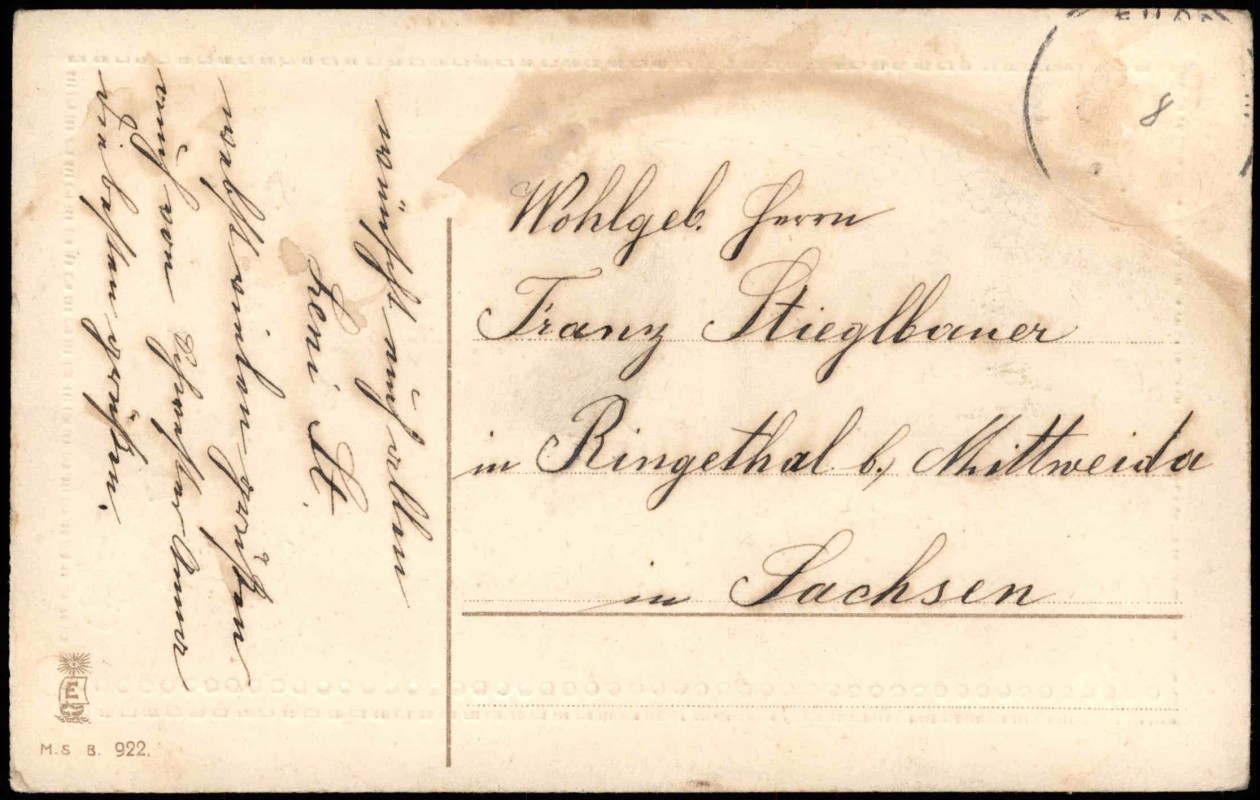 Wohlgeb. Herrn
Franz Stieglbauer
in Ringethal b, Mittweida
in Sachsen
wünscht euch allen
Leni St.
nebst vielen grüßen
auch von Schwester Anna
die besten grüßen.
8
M.S B. 922.